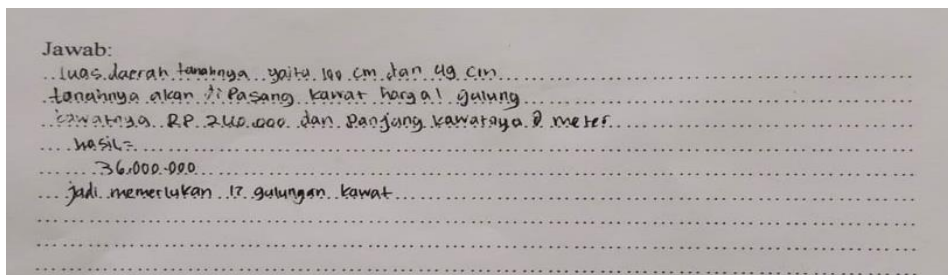 Jawab:
luas daerah tanahnya yaitu 100 cm dan 49 cm
tanahnya akan di Pasang kawat harga 1 gulung
kawatnya RP 240.000 dan Panjang kawatnya meter
hasil =
36.000.000
jadi memerlukan 17 gulungan kawat